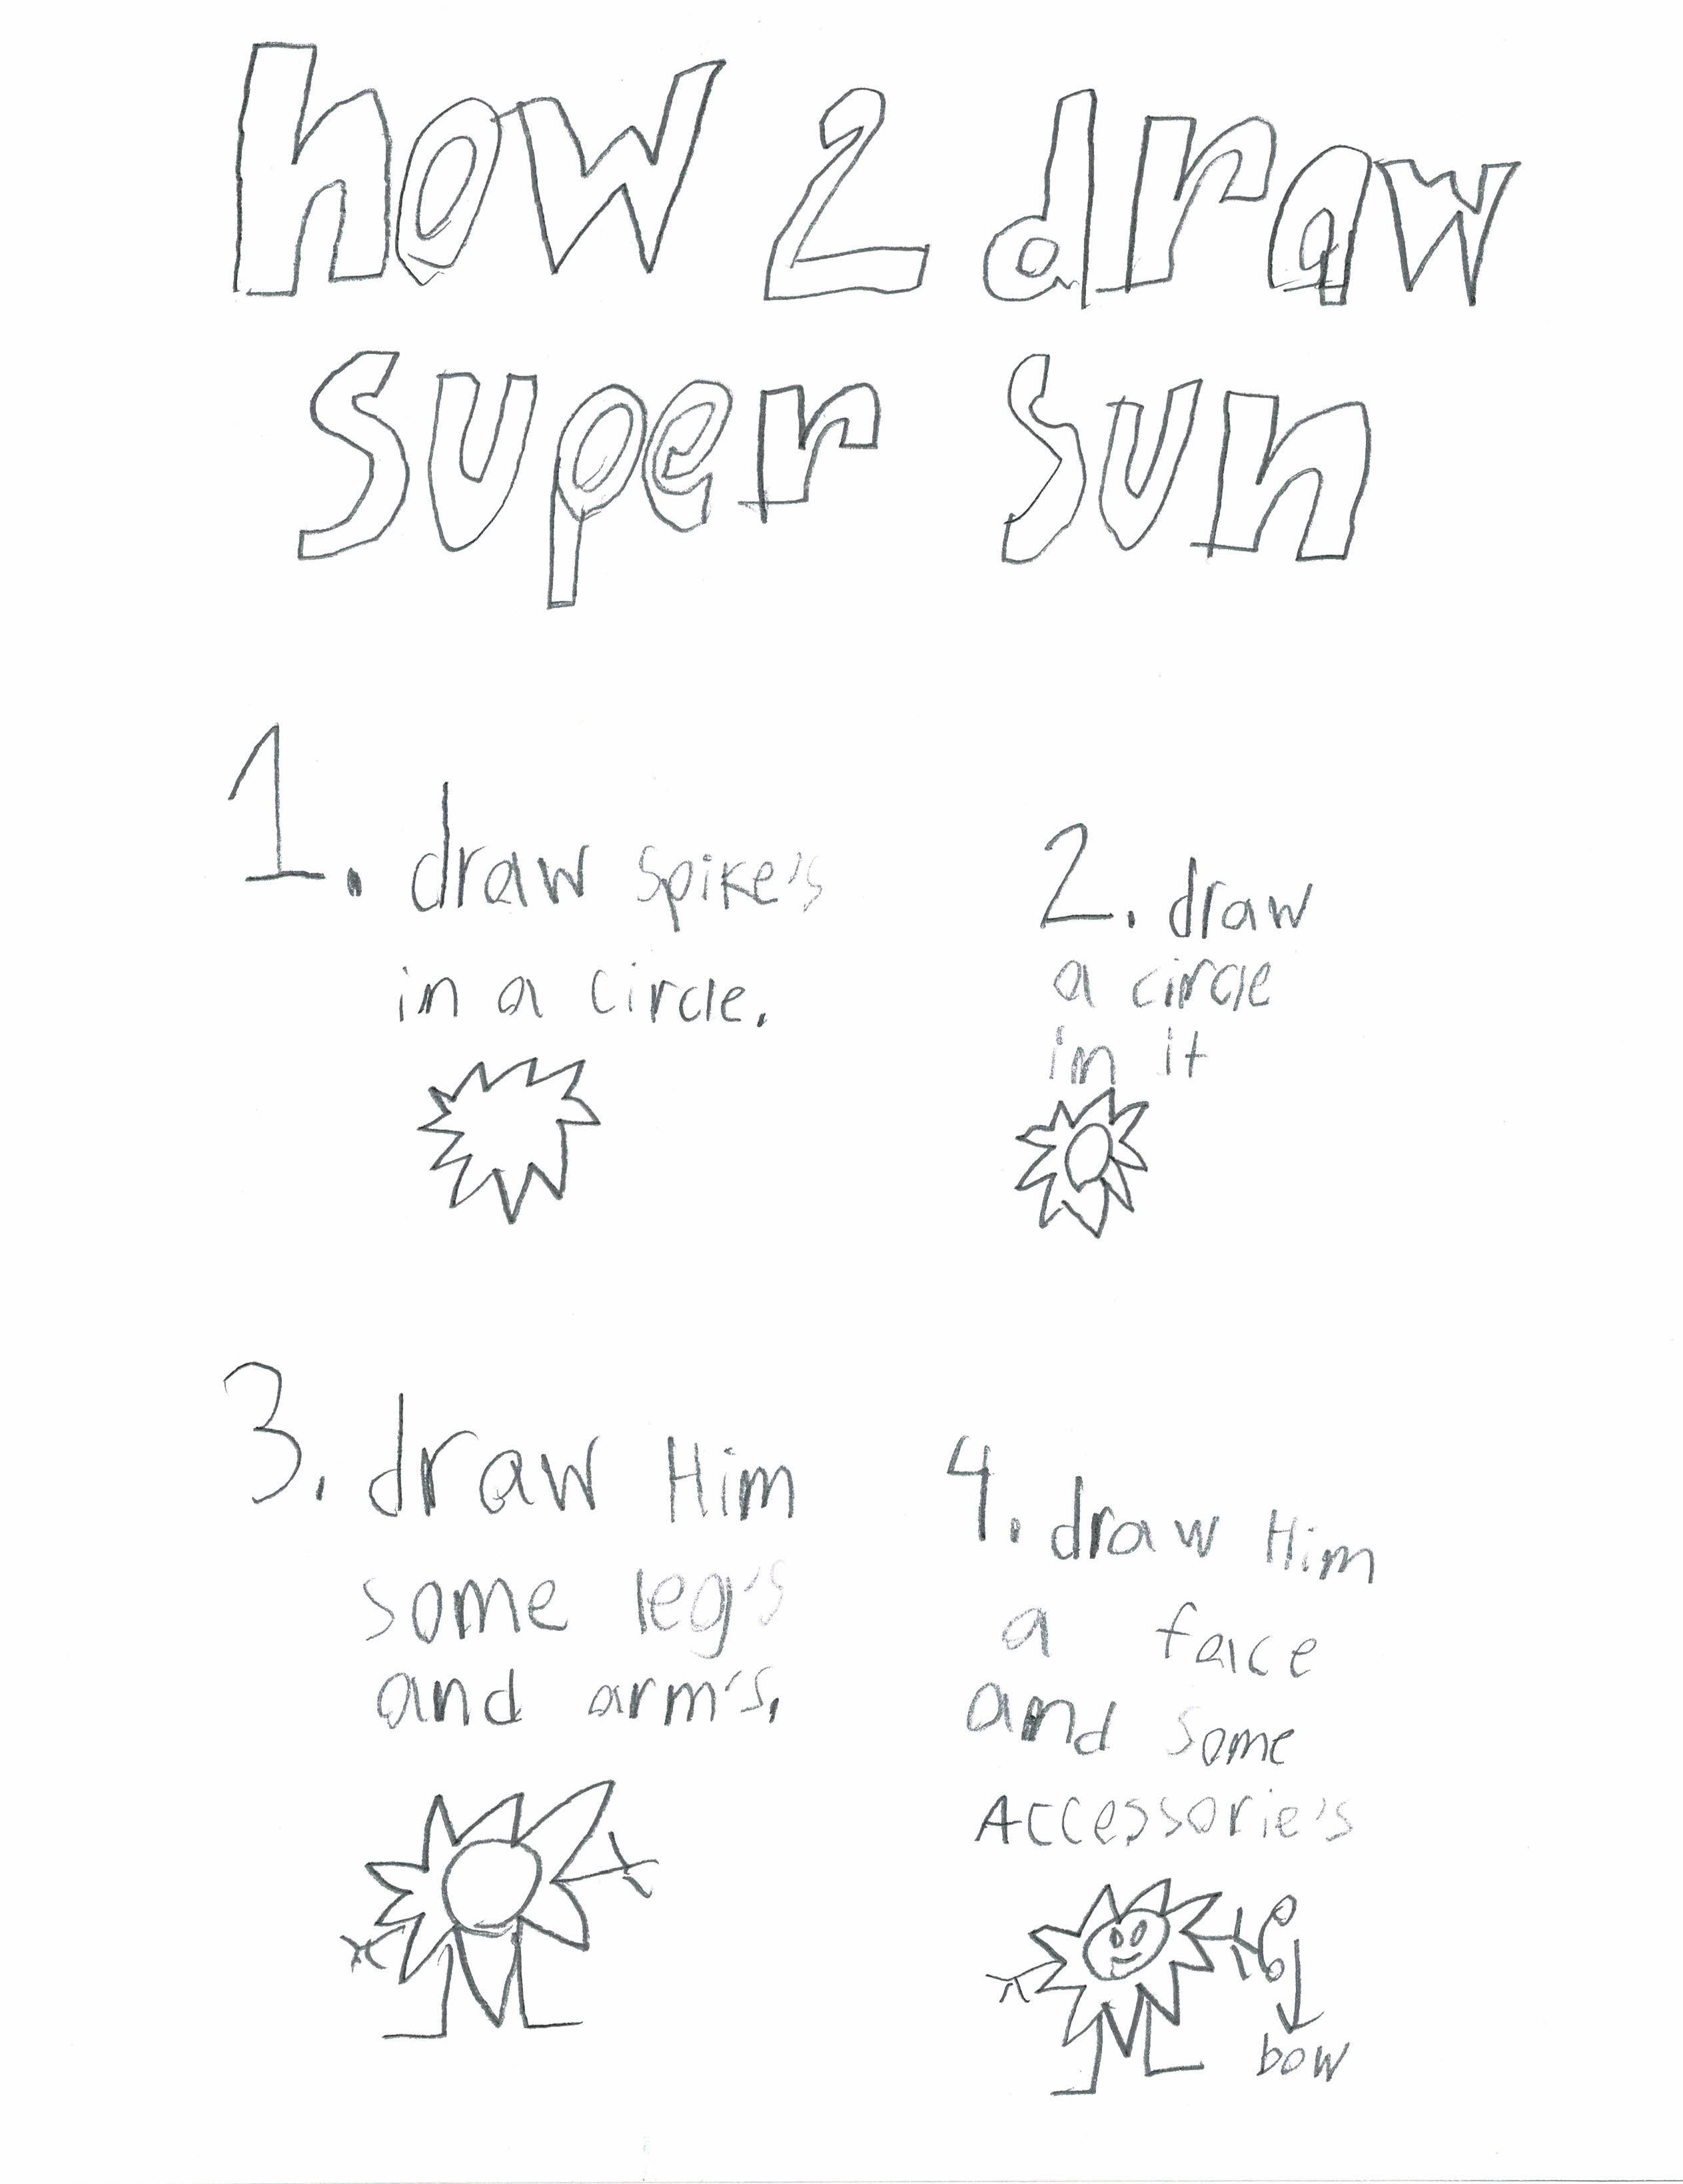 how 2 draw
super sun
1. draw spike's
in a circle.
2. draw
a circle
in it
3. draw Him
some leg's
and arm's.
4. draw Him
a face
and some
Accessorie's
bow